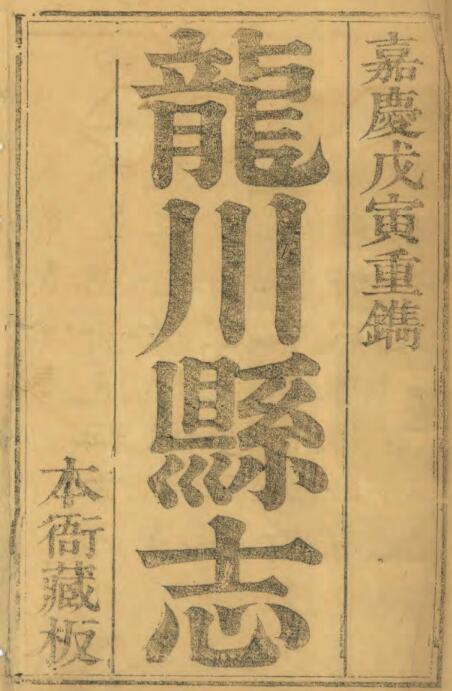 嘉慶戊寅重鐫
龍川縣志
本衙藏板